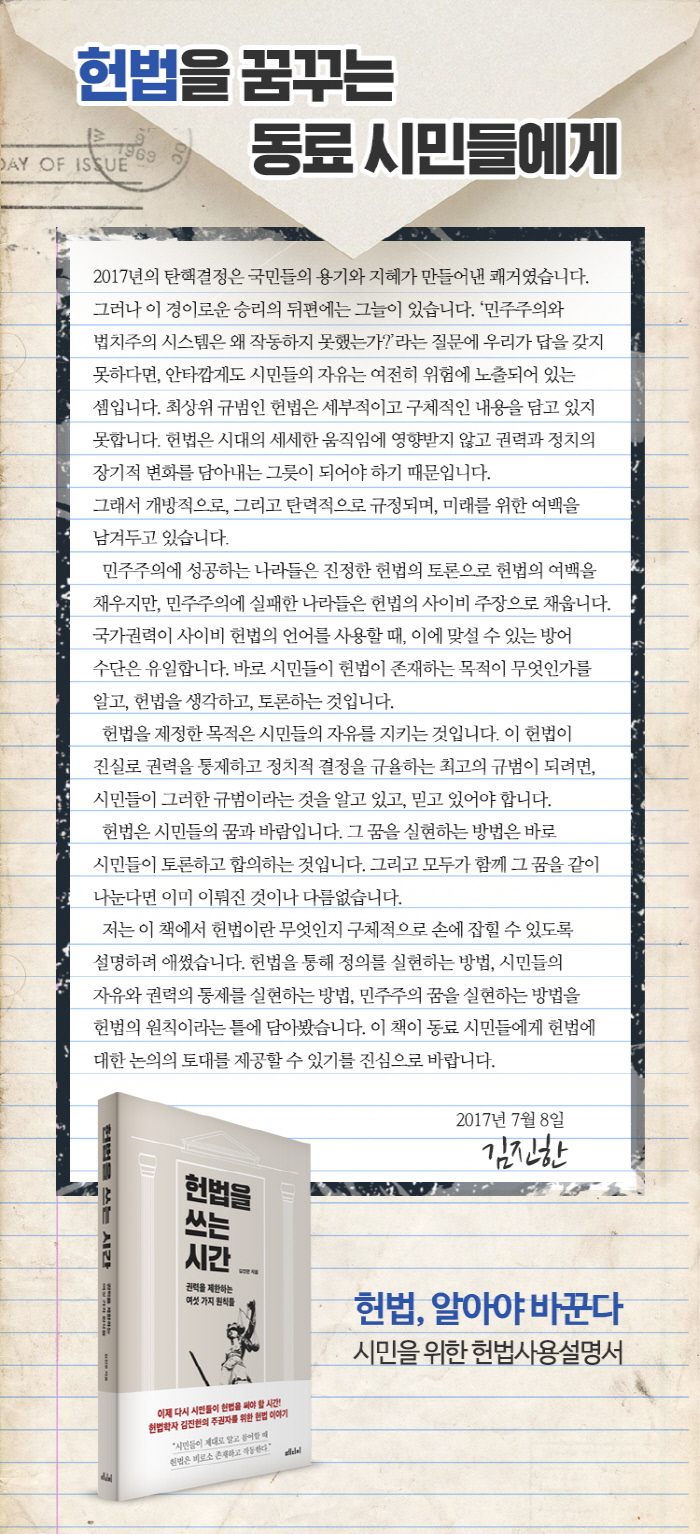 헌법을 꿈꾸는
동료 시민들에게
DAY OF ISSUE
1969
2017년의 탄핵결정은 국민들의 용기와 지혜가 만들어낸 쾌거였습니다.
그러나 이 경이로운 승리의 뒤편에는 그늘이 있습니다. ‘민주주의와
법치주의 시스템은 왜 작동하지 못했는가?’라는 질문에 우리가 답을 갖지
못하다면, 안타깝게도 시민들의 자유는 여전히 위험에 노출되어 있는
셈입니다. 최상위 규범인 헌법은 세부적이고 구체적인 내용을 담고 있지
못합니다. 헌법은 시대의 세세한 움직임에 영향받지 않고 권력과 정치의
장기적 변화를 담아내는 그릇이 되어야 하기 때문입니다.
그래서 개방적으로, 그리고 탄력적으로 규정되며, 미래를 위한 여백을
남겨두고 있습니다.
민주주의에 성공하는 나라들은 진정한 헌법의 토론으로 헌법의 여백을
채우지만, 민주주의에 실패한 나라들은 헌법의 사이비 주장으로 채웁니다.
국가권력이 사이비 헌법의 언어를 사용할 때, 이에 맞설 수 있는 방어
수단은 유일합니다. 바로 시민들이 헌법이 존재하는 목적이 무엇인가를
알고, 헌법을 생각하고, 토론하는 것입니다.
헌법을 제정한 목적은 시민들의 자유를 지키는 것입니다. 이 헌법이
진실로 권력을 통제하고 정치적 결정을 규율하는 최고의 규범이 되려면,
시민들이 그러한 규범이라는 것을 알고 있고, 믿고 있어야 합니다.
헌법은 시민들의 꿈과 바람입니다. 그 꿈을 실현하는 방법은 바로
시민들이 토론하고 합의하는 것입니다. 그리고 모두가 함께 그 꿈을 같이
나눈다면 이미 이뤄진 것이나 다름없습니다.
저는 이 책에서 헌법이란 무엇인지 구체적으로 손에 잡힐 수 있도록
설명하려 애썼습니다. 헌법을 통해 정의를 실현하는 방법, 시민들의
자유와 권력의 통제를 실현하는 방법, 민주주의 꿈을 실현하는 방법을
헌법의 원칙이라는 틀에 담아봤습니다. 이 책이 동료 시민들에게 헌법에
대한 논의의 토대를 제공할 수 있기를 진심으로 바랍니다.
2017년 7월 8일
김진한
헌법을 쓰는 시간
권력을 제한하는
여섯 가지 원칙들
김진한 지음
헌법을
쓰는
시간
김진한 지음
권력을 제한하는
여섯 가지 원칙들
이제 다시 시민들이 헌법을 써야 할 시간!
헌법학자 김진한의 주권자를 위한 헌법 이야기
“시민들이 제대로 알고 동여할 때
헌법은 비로소 존재하고 작동한다.”
메디치
메디치
헌법, 알아야 바꾼다
시민을 위한 헌법사용설명서